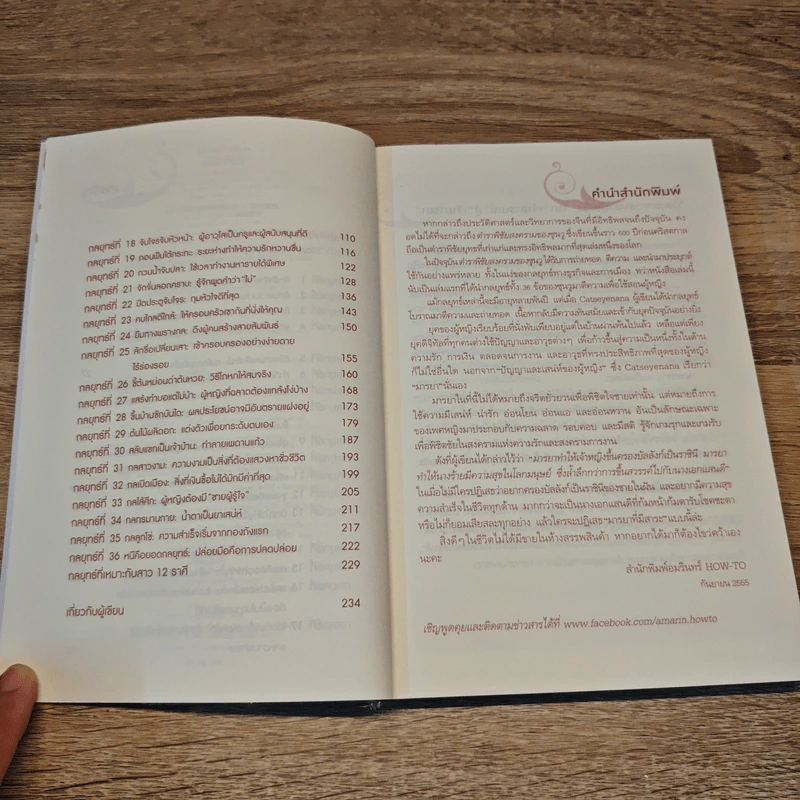 กลยุทธ์ที่ 18 จับโจรจับหัวหน้า: ผู้อาวุโสเป็นครูและผู้สนับสนุนที่ดี 110
กลยุทธ์ที่ 19 ถอนฟืนใต้กระทะ: ระยะห่างทำให้ความรักหวานชื่น 116
กลยุทธ์ที่ 20 กวนน้ำจับปลา: ใช้เวลาทำงานหารายได้พิเศษ 122
กลยุทธ์ที่ 21 จักจั่นลอกคราบ: รู้จักพูดคำว่า "ไม่" 128
กลยุทธ์ที่ 22 ปิดประตูจับโจร: กุมหัวใจดีที่สุด 136
กลยุทธ์ที่ 23 คบไกลตีใกล้: สร้างครอบครัวเขากับที่นั่งให้คุณ 143
กลยุทธ์ที่ 24 ยืมทางพรางกล: ดึงผู้คนสร้างสายสัมพันธ์ 150
กลยุทธ์ที่ 25 ลักขื่อเปลี่ยนเสา: เข้าครอบครองอย่างง่ายดาย
ไร้ร่องรอย 155
กลยุทธ์ที่ 26 ชี้ต้นหม่อนด่าต้นหวาย: วิธีโกหกให้สมจริง 160
กลยุทธ์ที่ 27 แสร้งทำบอแต่ไม่บ้า: ผู้หญิงที่ฉลาดต้องแกล้งโง่บ้าง 168
กลยุทธ์ที่ 28 ขึ้นบ้านชักบันได: ผลประโยชน์อาจมีอันตรายแฝงอยู่ 173
กลยุทธ์ที่ 29 ต้นไม้ผลิดอก: แต่งตัวเพื่อยกระดับตนเอง 179
กลยุทธ์ที่ 30 สลับแขกเป็นเจ้าบ้าน: ทำลายเพดานแก้ว 187
กลยุทธ์ที่ 31 กลสาวงาม: ความงามเป็นสิ่งที่ต้องแสวงหาชั่วชีวิต 193
กลยุทธ์ที่ 32 กลเปิดเมือง: สิ่งที่เงินซื้อไม่ได้มักมีค่าที่สุด 199
กลยุทธ์ที่ 33 กลไส้ศึก: ผู้หญิงต้องมี "ชายผู้รู้ใจ" 205
กลยุทธ์ที่ 34 กลทรมานกาย: น้ำตาเป็นยาเสน่ห์ 211
กลยุทธ์ที่ 35 กลลูกโซ่: ความสำเร็จเริ่มจากทองถังแรก 217
กลยุทธ์ที่ 36 หนีคือยอดกลยุทธ์: ปล่อยมือคือการปลดปล่อย 222
กลยุทธ์ที่เหมาะกับสาว 12 ราศี 229
เกี่ยวกับผู้เขียน 234
คำนำสำนักพิมพ์
หากกล่าวถึงประวัติศาสตร์และวิทยาการของจีนที่มีอิทธิพลจนถึงปัจจุบัน คง
อดไม่ได้ที่จะกล่าวถึง ตำราพิชัยสงครามของซุนวู ซึ่งเขียนขึ้นราว 600 ปีก่อนคริสตกาล
ถือเป็นตำราพิชัยยุทธที่เก่าแก่และทรงอิทธิพลมากที่สุดเล่มหนึ่งของโลก
ในปัจจุบัน ตำราพิชัยสงครามของซุนวู ได้รับการถ่ายทอด ตีความ และนำมาประยุกต์
ใช้กันอย่างแพร่หลาย ทั้งในแง่ของกลยุทธ์ทางธุรกิจและการเมือง ทว่าหนังสือเล่มนี้
นับเป็นเล่มแรกที่ได้นำกลยุทธ์ทั้ง 36 ข้อของซุนวูมาตีความเพื่อใช้สอนผู้หญิง
แม้กลยุทธ์เหล่านี้จะมีอายุหลายพันปี แต่เมื่อ Catseyemana ผู้เขียนได้นำกลยุทธ์
โบราณมาตีความและถ่ายทอด เนื้อหากลับมีความทันสมัยและเข้ากับยุคปัจจุบันอย่างยิ่ง
ยุคของผู้หญิงเรียบร้อยที่นั่งพับเพียบอยู่แต่ในบ้านผ่านพ้นไปแล้ว เหลือแต่เพียง
ยุคดิจิทัลที่ทุกคนต่างใช้ปัญญาและอาวุธต่างๆ เพื่อก้าวขึ้นสู่ความเป็นหนึ่งทั้งในด้าน
ความรัก การเงิน ตลอดจนการงาน และอาวุธที่ทรงประสิทธิภาพที่สุดของผู้หญิง
ก็ไม่ใช่อื่นใด นอกจาก "ปัญญาและเสน่ห์ของผู้หญิง" ซึ่ง Catseyemana เรียกว่า
"มารยา" นั่นเอง
มารยาในที่นี้ไม่ได้หมายถึงจริตยั่วยวนเพื่อพิชิตใจชายเท่านั้น แต่หมายถึงการ
ใช้ความมีเสน่ห์ น่ารัก อ่อนโยน อ่อนแอ และอ่อนหวาน อันเป็นลักษณะเฉพาะ
ของเพศหญิงมาประกอบกับความฉลาด รอบคอบ และมีสติ รู้จักเกมรุกและเกมรับ
เพื่อพิชิตชัยในสงครามแห่งความรักและสงครามการงาน
ดังที่ผู้เขียนได้กล่าวไว้ว่า "มารยาทำให้เจ้าหญิงขึ้นครองบัลลังก์เป็นราชินี มารยา
ทำให้นางร้ายมีความสุขในโลกมนุษย์ ซึ่งล้ำลึกกว่าการขึ้นสวรรค์ไปกับนางเอกแสนดี"
ในเมื่อไม่มีใครปฏิเสธว่าอยากครองบัลลังก์เป็นราชินีของชายในฝัน และอยากมีความสุข
ความสำเร็จในชีวิตทุกด้าน มากกว่าจะเป็นนางเอกแสนดีที่ก้มหน้าก้มตารับโชคชะตา
หรือไม่ก็ยอมเสียสละทุกอย่าง แล้วใครจะปฏิเสธ "มารยาที่มีสาระ" แบบนี้ล่ะ
สิ่งดีๆ ในชีวิตไม่ได้มีขายในห้างสรรพสินค้า หากอยากได้มาก็ต้องไขว่คว้าเอง
นะคะ
สำนักพิมพ์อมรินทร์ HOW-TO
กันยายน 2555
เชิญพูดคุยและติดตามข่าวสารได้ที่ www.facebook.com/amarin.howto